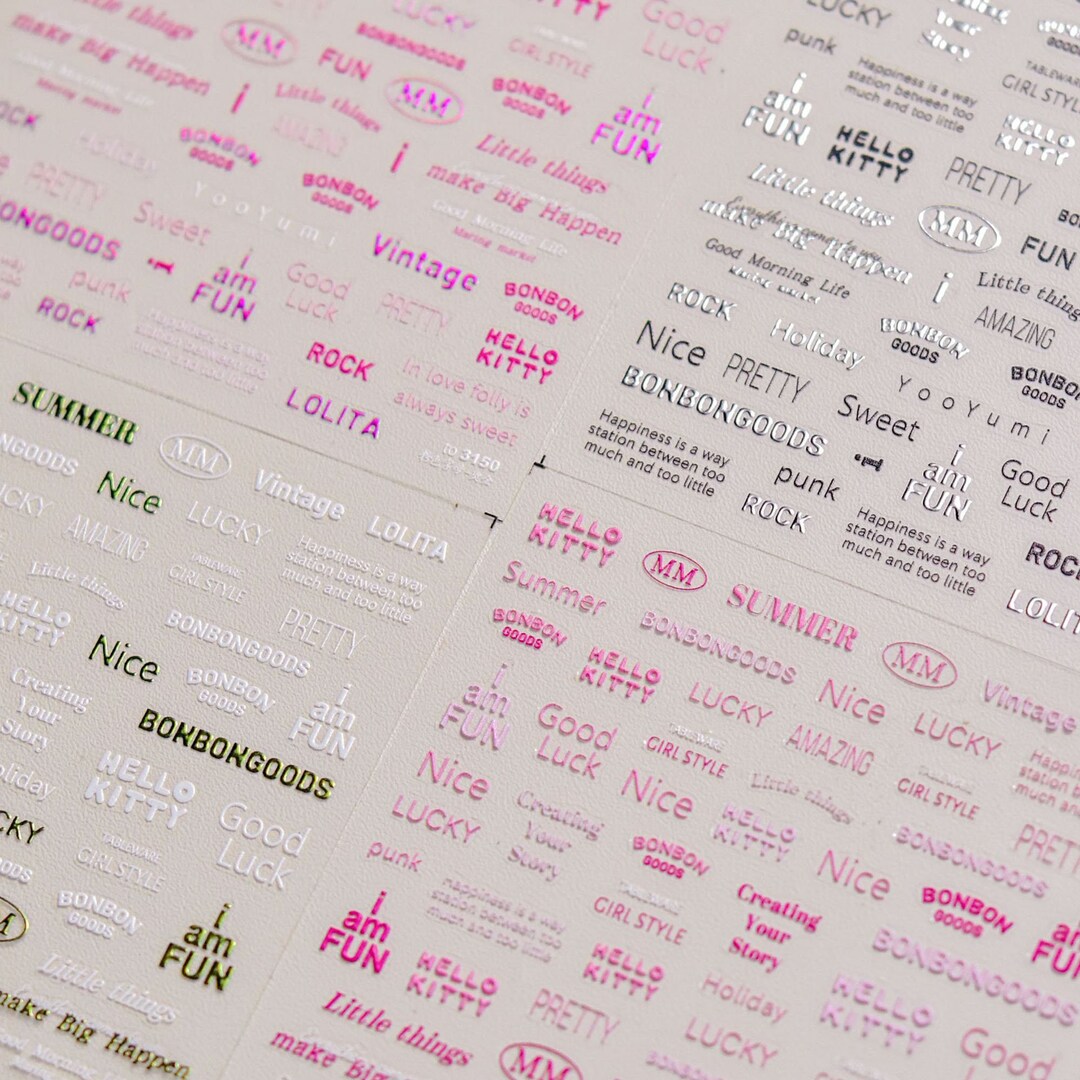 Little things
LUCKY
Good
Luck
make Big Happen
MM
BONBONGOODS
GIRL STYLE
FUN
BONBON
GOODS
i
am
FUN
MM
Little things
i
AMAZING
Little things
make Big Happen
Good Morning Life
BONBON
GOODS
Holiday
i
PRETTY
BONBON
GOODS
YooYumi
Sweet
Vintage
BONBON
GOODS
punk
i
am
FUN
Good
Luck
PRETTY
HELLO
KITTY
ROCK
ROCK
In love folly is
always sweet
LOLITA
to 3150
LUCKY
Your
Story
punk
Happiness is a way
station between too
much and too little
TABLEWARE
GIRL STYLE
i
am
FUN
HELLO
KITTY
HELLO
KITTY
PRETTY
Little things
make Big Happen
MM
FUN
Good Morning Life
i
Little things
ROCK
Holiday
BONBON
GOODS
AMAZING
Nice
PRETTY
BONBON
GOODS
BONBONGOODS
YooYumi
Sweet
Happiness is a way
station between too
much and too little
punk
i
am
FUN
Good
Luck
ROCK
Happiness is a way
station between too
much and too little
ROCK
LOLITA
SUMMER
MM
Vintage
LOLITA
Nice
LUCKY
AMAZING
Happiness is a way
station between too
much and too little
TABLEWARE
GIRL STYLE
Little things
PRETTY
HELLO
KITTY
BONBONGOODS
Nice
BONBON
GOODS
i
am
FUN
Creating
Your
Story
BONBONGOODS
Holiday
HELLO
KITTY
Good
Luck
TABLEWARE
GIRL STYLE
BONBON
GOODS
i
am
FUN
Little things
make Big Happen
HELLO
KITTY
MM
SUMMER
MM
Vintage
Summer
BONBONGOODS
BONBON
GOODS
HELLO
KITTY
LUCKY
Nice
LUCKY
i
am
FUN
Good
Luck
TABLEWARE
GIRL STYLE
AMAZING
GIRL STYLE
Nice
Nice
Little things
LUCKY
Creating
Your
Story
HELLO
KITTY
BONBONGOODS
PRETTY
punk
BONBON
GOODS
Nice
BONBON
GOODS
Happiness is a way
station between too
much and too little
GIRL STYLE
Creating
Your
Story
BONBONGOODS
i
am
FUN
HELLO
KITTY
HELLO
KITTY
Holiday
HELLO
KITTY
Little things
PRETTY
LUCKY
Good
make Big
MM